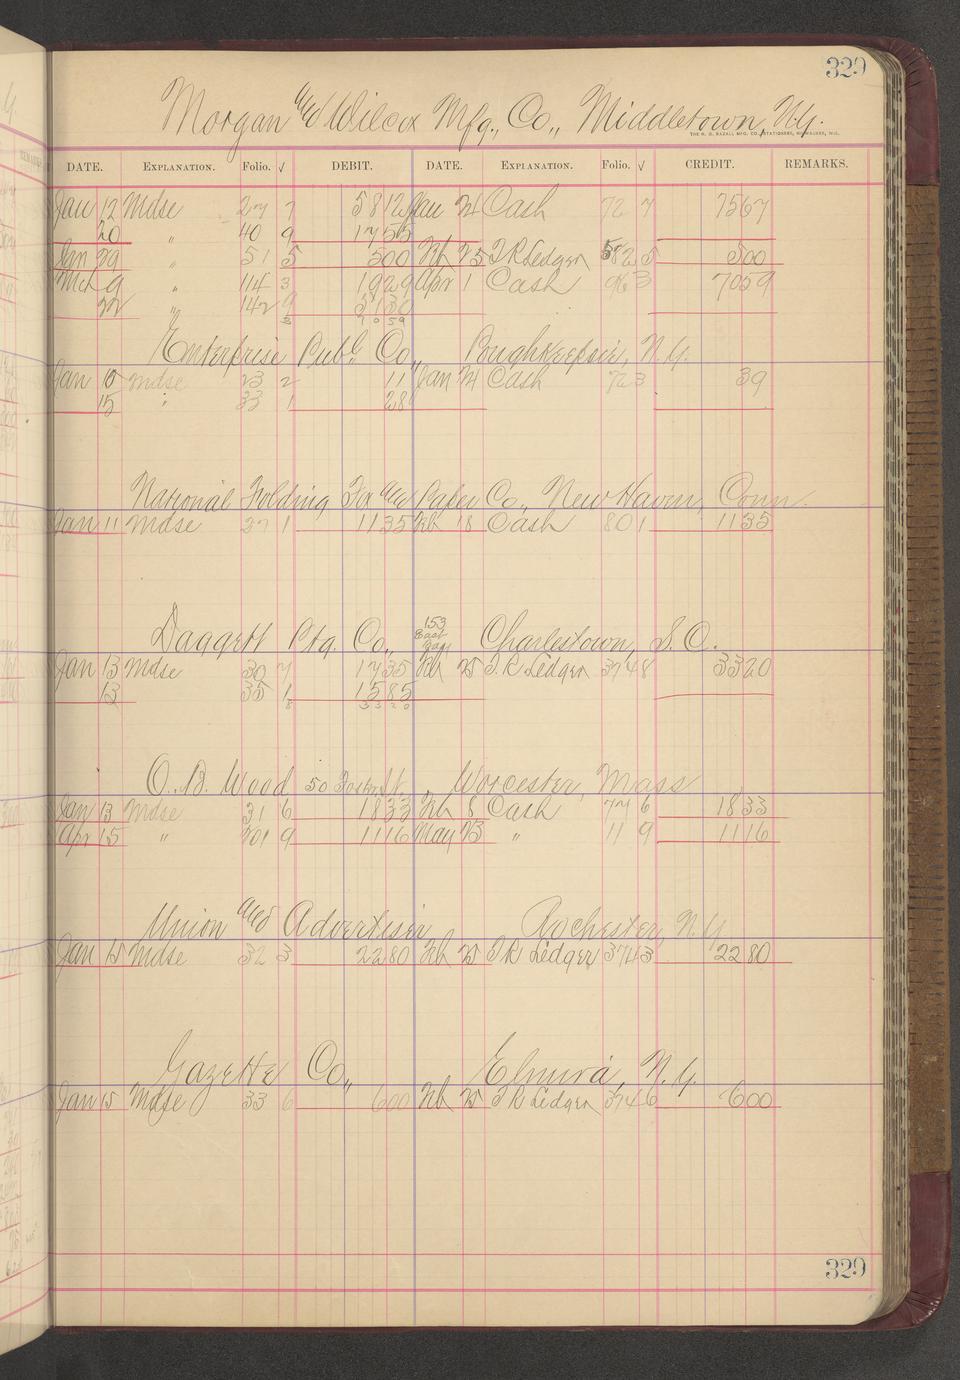 329
Morgan and Wilcox Mfg., Co., Middletown, N.Y.
DATE. EXPLANATION. Folio. √ DEBIT. DATE. EXPLANATION. Folio. √ CREDIT. REMARKS.
Jan 12 Mdse 27 7 58 12 Jan 24 Cash 72 7 75 67
20 " 40 9 17 55
Jan 29 " 51 5 5 00 Feb 25 T.R. Ledger 5 5 00
Mch 9 " 114 3 19 29 Apr 1 Cash 96 3 70 59
22 " 142 9 51 30
3 70 59
Enterprise Publ. Co., Poughkeepsie, N.Y.
Jan 10 Mdse 23 2 11 Jan 24 Cash 72 3 39
15 " 33 1 28
National Folding Box and Paper Co., New Haven, Conn.
Jan 11 Mdse 27 1 11 35 Feb 18 Cash 80 1 11 35
Daggett Ptg. Co., 153 East Bay Charlestown, S.C.
Jan 13 Mdse 30 7 17 35 Feb 25 T.R. Ledger 374 8 33 20
13 35 1 15 85
8 33 20
O.B. Wood 50 Foster St. Worcester, Mass
Jan 13 Mdse 31 6 18 33 Feb 8 Cash 77 6 18 33
Apr 15 " 201 9 11 16 May 23 " 11 9 11 16
Union and Advertiser Rochester, N.Y.
Jan 15 Mdse 32 3 22 80 Feb 25 T.R. Ledger 374 3 22 80
Gazette Co., Elmira, N.Y.
Jan 15 Mdse 33 6 6 00 Feb 25 T.R. Ledger 374 6 6 00
329